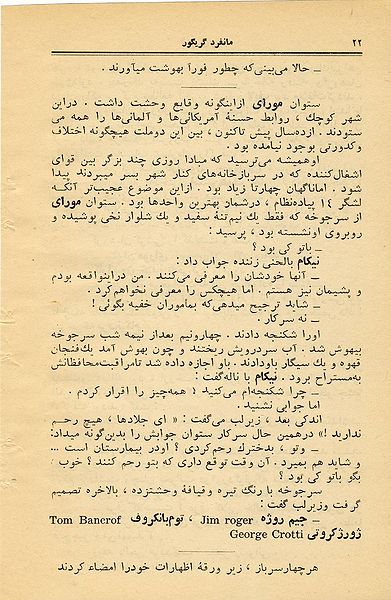 ۲۲ مانفرد گریگور
ــ حالا می‌بینی‌که چطور فوراً بهوشت میآورند .
ستوان مورای ازاینگونه وقایع وحشت داشت . دراین
شهر کوچك ، روابط حسنهٔ آمریکائی‌ها و آلمانی‌ها را همه می
ستودند . ازده‌سال پیش تاکنون ، بین این دوملت هیچگونه اختلاف
وکدورتی بوجود نیامده بود .
اوهمیشه می‌ترسید که مبادا روزی چند بزگر بین قوای
اشغال‌کننده که در سربازخانه‌های کنار شهر بسر میبردند پیدا
شود . اماناگهان چهارتا زیاد بود . ازاین موضوع عجیب‌تر آنکه
لشگر ۱۴ پیاده‌نظام ، درشمار بهترین واحدها بود . ستوان مورای
از سرجوخه که فقط یك نیم‌تنهٔ سفید و یك شلوار نخی پوشیده و
روبروی اونشسته بود ، پرسید :
ــ باتو کی بود ؟
نیکام بالحنی زننده جواب داد :
ــ آنها خودشان را معرفی می‌کنند . من دراینواقعه بودم
و پشیمان نیز هستم . اما هیچکس را معرفی نخواهم‌کرد .
ــ شاید ترجیح میدهی‌که بماموران خفیه بگوئی !
ــ نه سرکار .
اورا شکنجه دادند . چهارونیم بعداز نیمه شب سرجوخه
بیهوش شد . آب سردرویش ریختند و چون بهوش آمد یك‌فنجان
قهوه و یك سیگار باودادند . باو اجازه داده شد تامراقبت‌محافظانش
به‌مستراح برود . نیکام با ناله‌گفت :
ــ چرا شکنجه‌ام می‌کنید ؛ همه‌چیز را اقرار کردم .
اما جوابی نشنید .
اندکی بعد ، زیرلب می‌گفت : « ای جلادها ، هیچ رحم
ندارید !» درهمین حال سرکار ستوان جوابش را بدین‌گونه میداد:
ــ وتو ، بدخترك رحم‌کردی ؟ اودر بیمارستان است ...
و شاید هم بمیرد . آن وقت توقع داری که بتو رحم کنند ؟ خوب
بگو باتو کی بود ؟
سرجوخه با رنگ تیره وقیافهٔ وحشتزده ، بالاخره تصمیم
گرفت وزیرلب گفت :
ــ جیم روژه Jim roger ، توم‌بانکروف Tom Bancrof
ژورژکروتی George Crotti
هرچهارسرباز ، زیر ورقهٔ اظهارات خودرا امضاء کردند